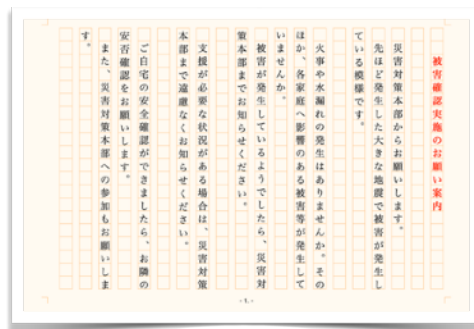 被害確認実施のお願い案内
災害対策本部からお願いします。
先ほど発生した大きな地震で被害が発生し
ている模様です。
火事や水漏れの発生はありませんか。その
ほか、各家庭へ影響のある被害等が発生して
いませんか。
被害が発生しているようでしたら、災害対
策本部までお知らせください。
支援が必要な状況がある場合は、災害対策
本部まで遠慮なくお知らせください。
ご自宅の安全確認ができましたら、お隣の
安否確認をお願いします。
また、災害対策本部への参加もお願いしま
す。
- 1 -